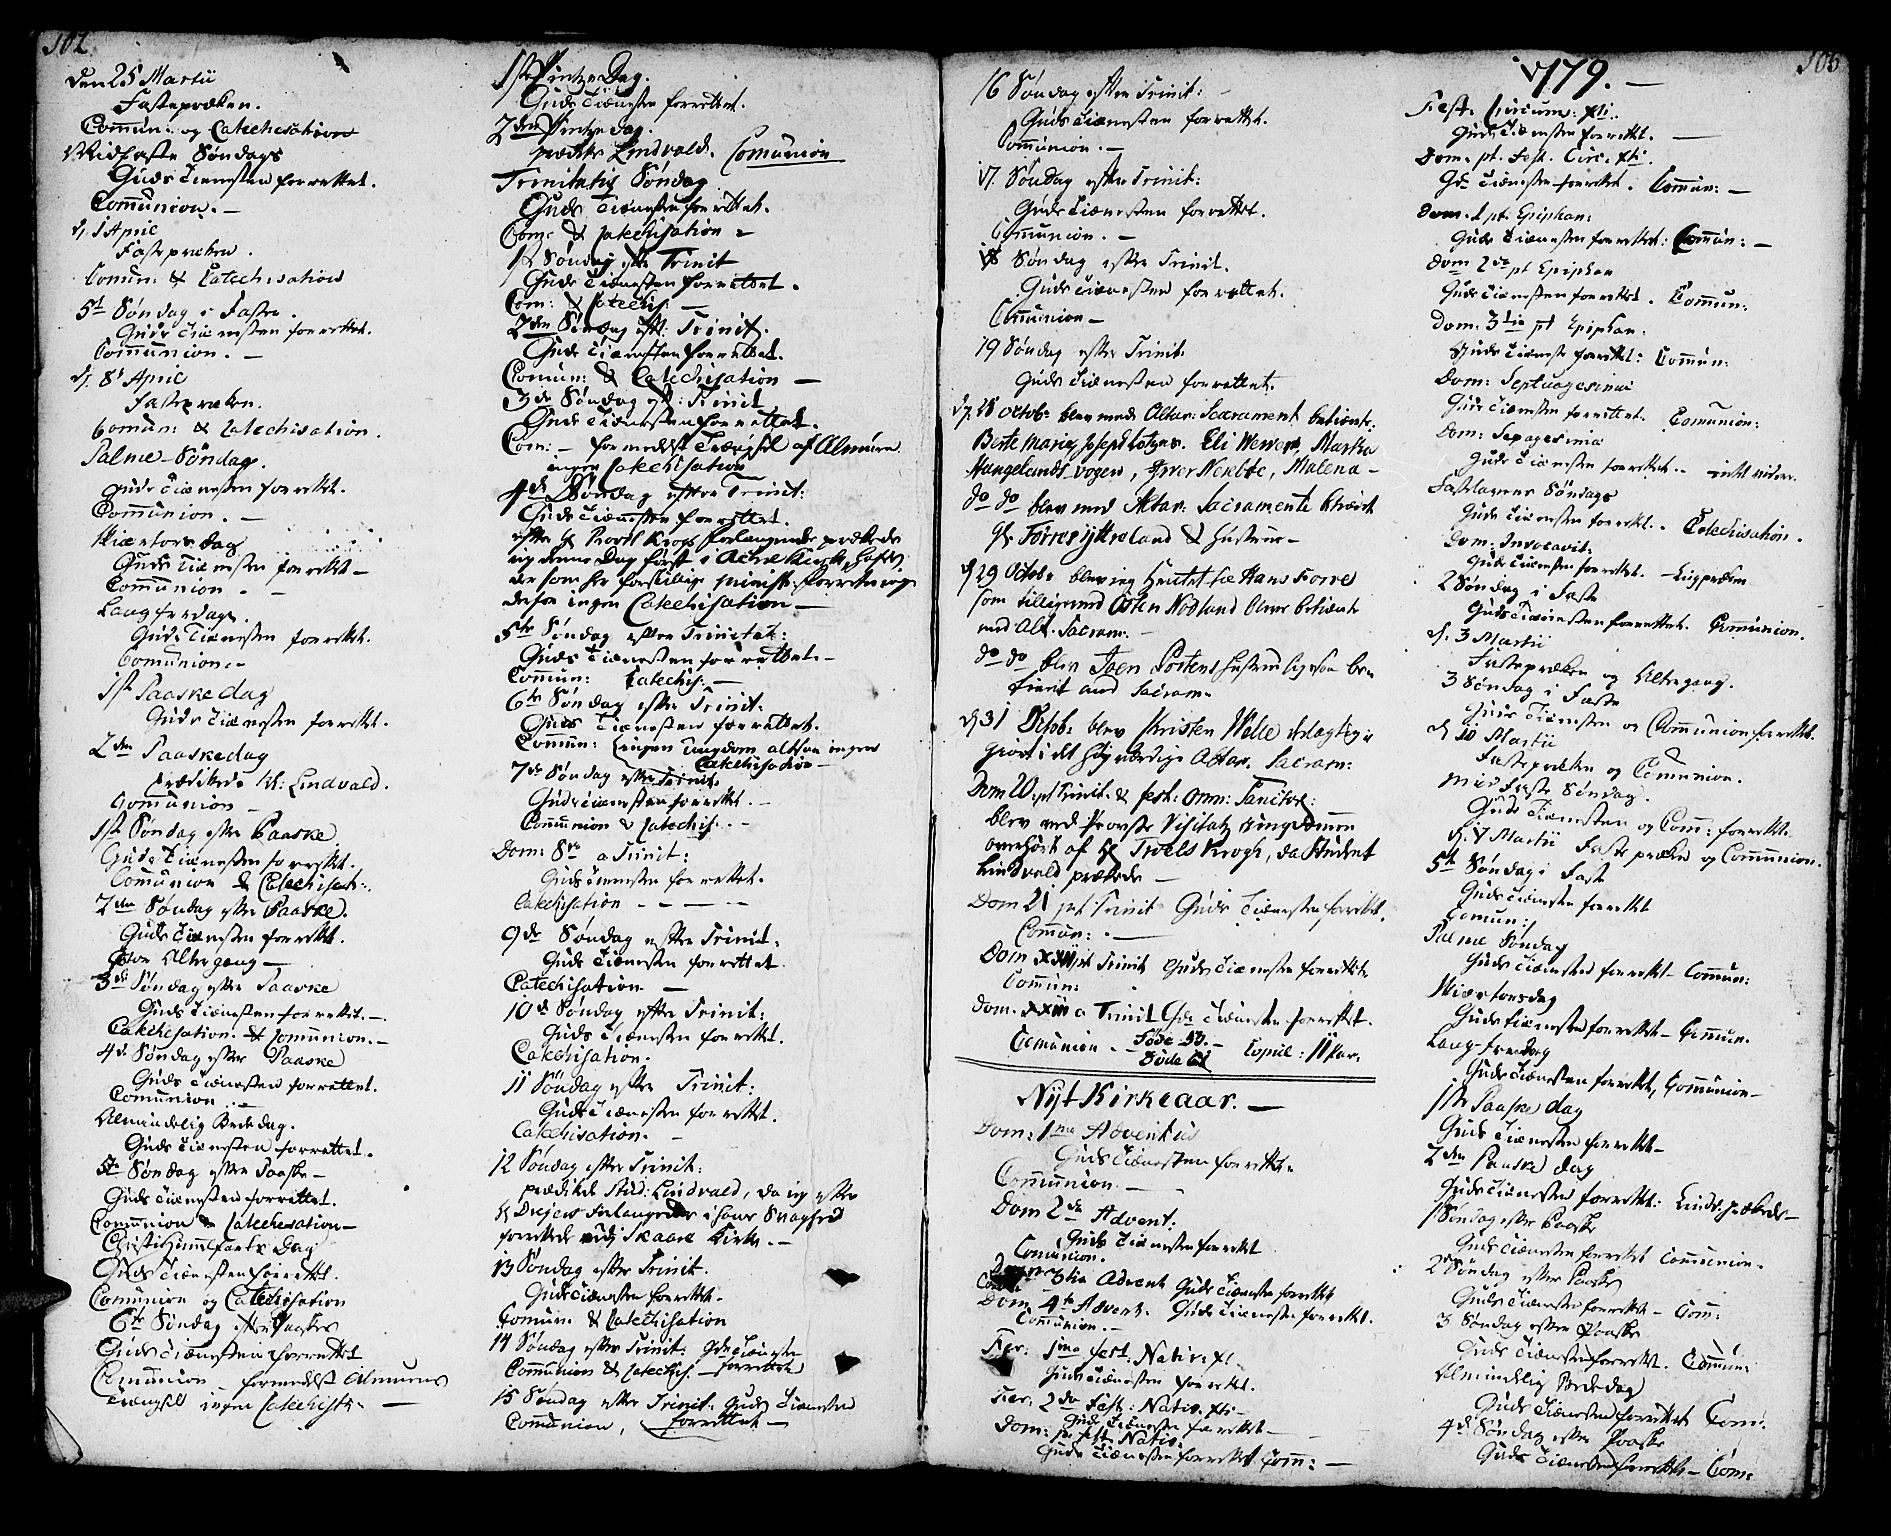 102
den 25 Martii
Fastepræken.
Commun: og Catechisation
Midfaste Søndags
Guds Tiænesten forrettet.
Communion. –
d. 1 April
Fastepræken.
Comun: & Catechisation
5t Søndag i Faste.
Guds Tiænesten forrettet.
Communion. –
d. 8de April
Fastepræken.
Comun: & Catechisation.
Palme-Søndag.
Guds Tiænesten forrettet.
Communion. –
Skiærtorsdag
Guds Tiænesten forrettet –
Communion. –
Langfredag.
Guds Tiænesten forrettet.
Comunion. –
1ste Paaskedag
Guds Tiænesten forrettet.
2den Paaskedag
prædikede Lindvald.
Comunion –
1ste Søndag efter Paaske
Guds Tiænesten forrettet.
Communion & Catechisat:.
2den Søndag efter Paaske.
Guds Tiænesten forrettet.
Altergang –
3de Søndag efter Paaske
Guds Tiænesten forrettet. –
Catechisation. & Comunion. –
4de Søndag efter Paaske
Guds Tiænesten forrettet.
Comunion. –
Almindelig Bededag.
Guds Tiænesten forrettet.
5te Søndag efter Paaske –
Guds Tiænesten forrettet.
Communion & Catechisation –
Christi Himmelfarts Dag
Guds Tiænesten forrettet.
Comunion og Catechisation
6te Søndag efter Paaske
Guds Tiænesten forrettet
Comunion formedelst Almuens
Trængsel ingen Catechisat: –
1ste Pintze Dag.
Guds Tiænesten forrettet.
2den Pintzedag.
prædikte Lindvald. Comunion
Trinitatis Søndag
Guds Tiænesten forrettet.
Com: & Catechisation –
1ste Søndag efter Trinit
Guds Tiænesten forrettet.
Com: & Catechis: –
2den Søndag eft: Trinit.
Guds Tiænesten forrettet.
Comun: & Catechisation –
3de Søndag eft: Trinit
Guds Tiænesten forrettet.
Com: – formedelst Trængsel af Almuen
ingen Catechisation
4de Søndag efter Trinit:
Guds Tiænesten forrettet.
efter Hr Provst Krogs forlangende prækede
jeg denne Dag først i
forretninger
derfor ingen Catechisation –
5te Søndag efter Trinitat:
Guds Tiænesten forrettet –
Commun: Catechis: –
6te Søndag efter Trinit:
Guds Tiænesten forrettet.
Commun: ingen Ungdom altsaa ingen
Catechisation –
7de Søndag efter Trinit.
Guds Tiænesten forrettet. –
Communion & Catechis: –
Dom: 8va a Trinit:
Guds Tienesten forrettet.
Catechisation – – –
9de Søndag efter Trinit:
Guds Tiænesten forrettet
Catechisation –
10de Søndag efter Trinit:
Guds Tiænesten forrettet.
Catechisation.
11 Søndag efter Trinit:
Guds Tiænesten forrettet.
Catechisation. –
12 Søndag efter Trinit:
prædikede Stud: Lindvald, da jeg efter
Hr Forlangende i hans Svaghed
forrettede ved Skaare Kirke. –
13 Søndag efter Trinit:
Guds Tiænesten forrettet.
Comun: & Catechisation
14 Søndag efter Trinit: Gds Tiæneste
Communion & Catechis: – forrettet
15 Søndag efter Trinit: Guds Tiænesten
Communion, forrettet –
16 Søndag efter Trinit: –
Guds Tiænesten forrettet.
Communion. –
17. Søndag efter Trinit:
Guds Tiænesten forrettet.
Communion. –
18 Søndag efter Trinit.
Guds Tiænesten forrettet.
Communion –
19 Søndag efter Trinit:
Guds Tiænesten forrettet.
d. 28 Octob: blev med Altar: Sacrament betient:
Berte Marie Eli Martha
Malena –
do do blev med Altar: Sacramente
Hr Land & Hustrue –
d 29 Octob: blev jeg hentet til Hans Torre
som tilligemed Østen Nodland blev betiænt
med Alt. Sacram: –
do do blev Hustrue ligesaa be
tient med Sacram.
d 31 Octob: blev Kristen Welle delagtig
giort i det Høyværdige Altar. Sacram:
Dom 20. pt Trinit. & fest: omn: Sanctor:
blev ved Provste Visitatz Ungdommen
overhørt af Hr Troels Krogh, da Student
Lindvald prækede –
Dom 21 pt Trinit Guds Tiænesten forrettet.
Commun: –
Dom XXII pt Trinit Guds Tiænesten forrettet
Commun:
Dom. XXIII a Trinit Gds Tiæneste forrettet.
Communion – Føde 50. – Copul: 11 Par.
Døde 61
Nyt Kirkeaar. –
Dom: 1ma Adventus
Guds Tiænesten forrettet.
Communion. –
Dom 2da Advent:
Guds Tiænesten forrettet
Comunion.
3tia Advent Guds Tiæneste forrettet
Dom 4ta Advent. Guds Tiænesten forrettet.
Communion. –
Fer: 1ma fest: Nativ: Xti
Guds Tiænesten forrettet.
Fer: 2da Fest: Nativ. Xti –
Guds Tiænesten forrettet –
Dom: p. fest. Nativ:
Guds Tiænesten forrettet Com: –
103
1779. –
Fest: Circum: Xti.
Guds Tiænesten forrettet. –
Dom. pt. Fest. Circ. Xti.
Gds Tiænesten forrettet. Commun: –
Dom. 1 pt. Epiphan:
Guds Tiænesten forrettet: Commun: –
Dom 2da pt Epiphan
Guds Tiænesten forrettet. Commun:
Dom: 3tia pt Epiphan.
Guds Tiæneste forrettet: Commun:
Dom: Septuagesima
Guds Tiænesten forrettet. Comunion:
Dom: Sexagesima
Guds Tiænesten forrettet. – intet videre.
Fastelavens Søndags
Guds Tiænesten forrettet. – Catechisation.
Dom: Invocavit:
Guds Tiænesten forrettet. –
2 Søndag i Faste
Guds Tiænesten forrettet. Communion.
d. 3 Martii
Fastepræken og Altergang.
3 Søndag i Faste
Guds Tiænesten og Communion forrettet.
d 10 Martii
Fastepræken og Comunion.
Midfaste Søndag.
Guds Tiænesten og Com: forrettet.
d. 17 Martii Fastepræken og Communion.
5te Søndag i Faste
Guds Tiænesten forrettet
Comun:
Palme Søndag
Guds Tiænesten forrettet – Commun:
Skiærtorsdag
Guds Tiænesten forrettet – Commun.
Lang-fredag
Guds Tiænesten forrettet, Communion –
1ste Paaske dag
Guds Tiænesten forrettet –
2den Paaske dag
Guds Tiænesten forrettet: Lindv. prækede –
1 Søndag efter Paaske
Guds Tiænesten forrettet Communion.
2 Søndag efter Paaske
Guds Tiænesten forrettet – Com:
3 Søndag efter Paaske
Guds Tiænesten forrettet. Commun:
Almindelig Bededag
Guds Tiænesten forrettet Com:
4de Søndag efter Paaske
Guds Tiænesten forrettet – Com: